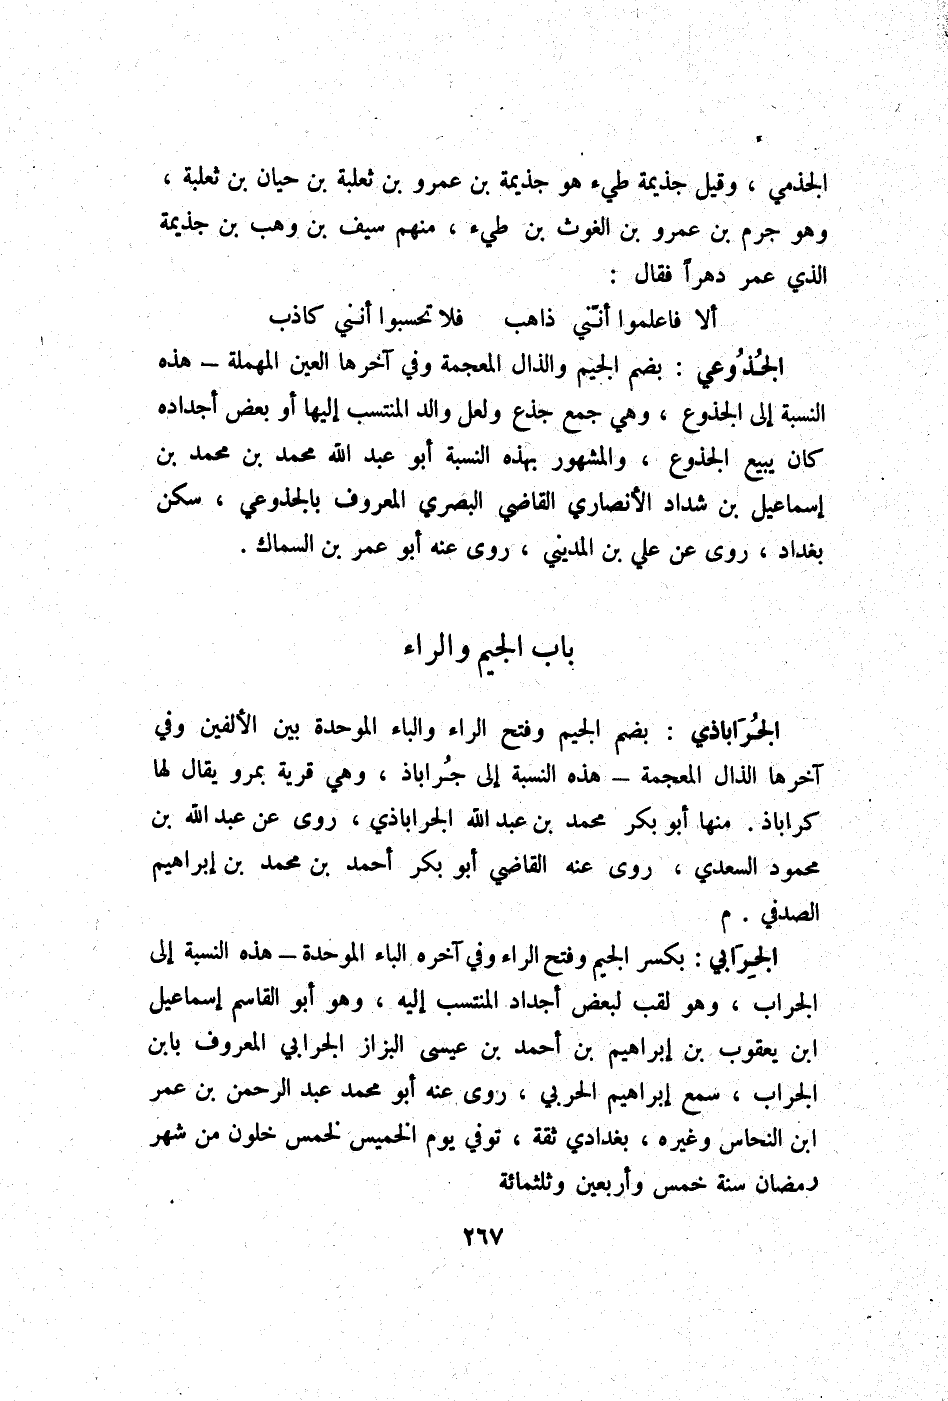 الجذمي ، وقيل جذيمة طيء هو جذيمة بن عمرو بن ثعلبة بن حيان بن ثعلبة ،
وهو جرم بن عمرو بن الغوث بن طيء ، منهم سيف بن وهب بن جذيمة
الذي عمر دهراً فقال :
ألا فاعلموا أنّني ذاهب فلا تحسبوا أنني كاذب
الجُذُوعي : بضم الجيم والذال المعجمة وفي آخرها العين المهملة – هذه
النسبة إلى الجذوع ، وهي جمع جذع ولعل والد المنتسب إليها أو بعض أجداده
كان يبيع الجذوع ، والمشهور بهذه النسبة أبو عبد الله محمد بن محمد بن
إسماعيل بن شداد الأنصاري القاضي البصري المعروف بالجذوعي ، سكن
بغداد ، روى عن علي بن المديني ، روى عنه أبو عمر بن السماك .
باب الجيم والراء
الجُرَاباذي : بضم الجيم وفتح الراء والباء الموحدة بين الألفين وفي
آخرها الذال المعجمة – هذه النسبة إلى جُراباذ ، وهي قرية بمرو يقال لها
كراباذ . منها أبو بكر محمد بن عبد الله الجراباذي ، روى عن عبد الله بن
محمود السعدي ، روى عنه القاضي أبو بكر أحمد بن محمد بن إبراهيم
الصدفي . م
الجِرَابي : بكسر الجيم وفتح الراء وفي آخره الباء الموحدة – هذه النسبة إلى
الجراب ، وهو لقب لبعض أجداد المنتسب إليه ، وهو أبو القاسم إسماعيل
ابن يعقوب بن إبراهيم بن أحمد بن عيسى البزاز الجرابي المعروف بابن
الجراب ، سمع إبراهيم الحربي ، روى عنه أبو محمد عبد الرحمن بن عمر
ابن النحاس وغيره ، بغدادي ثقة ، توفي يوم الخميس لخمس خلون من شهر
رمضان سنة خمس وأربعين وثلثمائة
٢٦٧